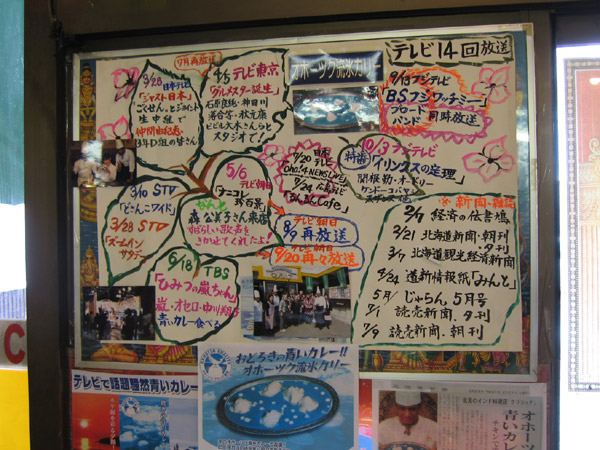 テレビ14回放送
7月再放送
3/28 日本テレビ
「ジャスト日本」
ごくせん。とジョイント
生中継で
仲間由紀恵
3年D組の皆さん
4/5 テレビ東京
「グルメスター誕生」
石原良純・神田川
落合务・秋元康
ビビる大木さんらと
スタジオで!
オホーツク流氷カリー
9/13 フジテレビ
BSフジ「ワッチミー」
ブロード
バンド 同時放送
特番 10/3 フジテレビ
「イリンクスの定理」
関根勤・オードリー
ケンドーコバヤシ
7/20 日本テレビ
「Oha!4 NEWS LIVE」
9/24 広島テレビ
Cafe」
5/6 テレビ朝日
「ナニコレ
珍百景」
なんと
森公美子さん来店
すばらしい歌声を
きかせてくれたよ!
テレビ朝日
8/9 再放送
テレビ朝日
9/20 再々放送
3/10 STV
「どさんこワイド」
3/28 STV
「ズームイン
サタデー」
6/18 TBS
「ひみつの嵐ちゃん」
嵐・オセロ・中川翔子
青いカレー食べる
新聞・雑誌
2/9 経済の伝書鳩
3/21 北海道新聞・朝刊
・夕刊
3/7 北海道観光経済新聞
4/24 道新情報紙「みんと」
5月 じゃらん 5月号
7/1 読売新聞、夕刊
7/9 読売新聞、朝刊
テレビで話題騒然青いカレー
おどろきの青いカレー!!
オホーツク流氷カリー
北見のインド料理店 クリシュナ
オホーツ
青いカレ
チキンで
C